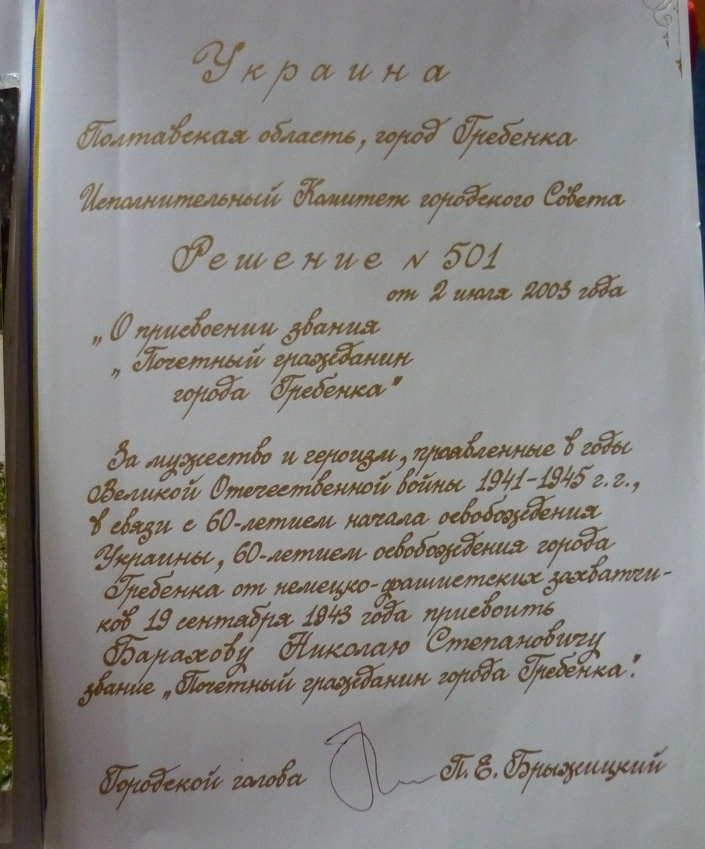 Украина
Полтавская область, город Гребенка
Исполнительный Комитет городского Совета
Решение N 501
от 2 июля 2003 года
„О присвоении звания
„Почетный гражданин
города Гребенка”
За мужество и героизм, проявленные в годы
Великой Отечественной войны 1941-1945 г.г.,
в связи с 60-летием начала освобождения
Украины, 60-летием освобождения города
Гребенка от немецко-фашистских захватчи-
ков 19 сентября 1943 года присвоить
Барахову Николаю Степановичу
звание „Почетный гражданин города Гребенка”.
Городской голова П. Е. Брыжицкий